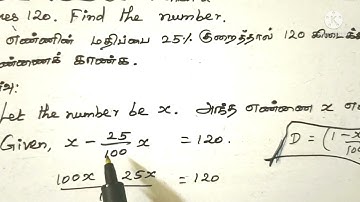 120. Find the number.
எண்ணின் மதிப்பை 25% குறைத்தால் 120
காண்க.
Let the number be x. அந்த எண்ணை x
Given, x - 25/100 x = 120.
100x 25x = 120
D = (1-x/100